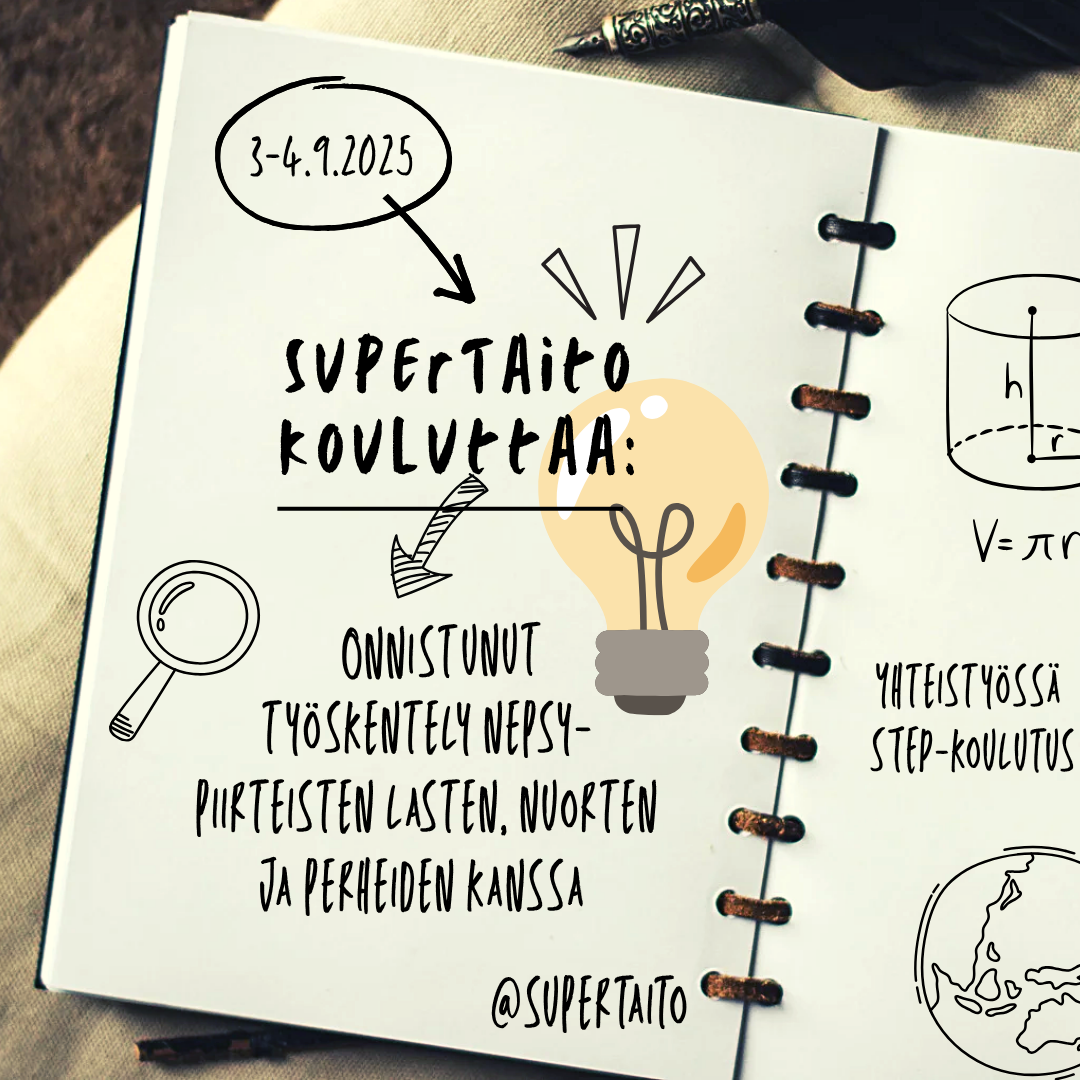 3-4.9.2025
SUPERTAITO
KOULUTTAA:
ONNISTUNUT
TYÖSKENTELY NEPSY-
PIIRTEISTEN LASTEN, NUORTEN
JA PERHEIDEN KANSSA
@SUPERTAITO
h
r
V= πr
YHTEISTYÖSSÄ
STEP-KOULUTUS